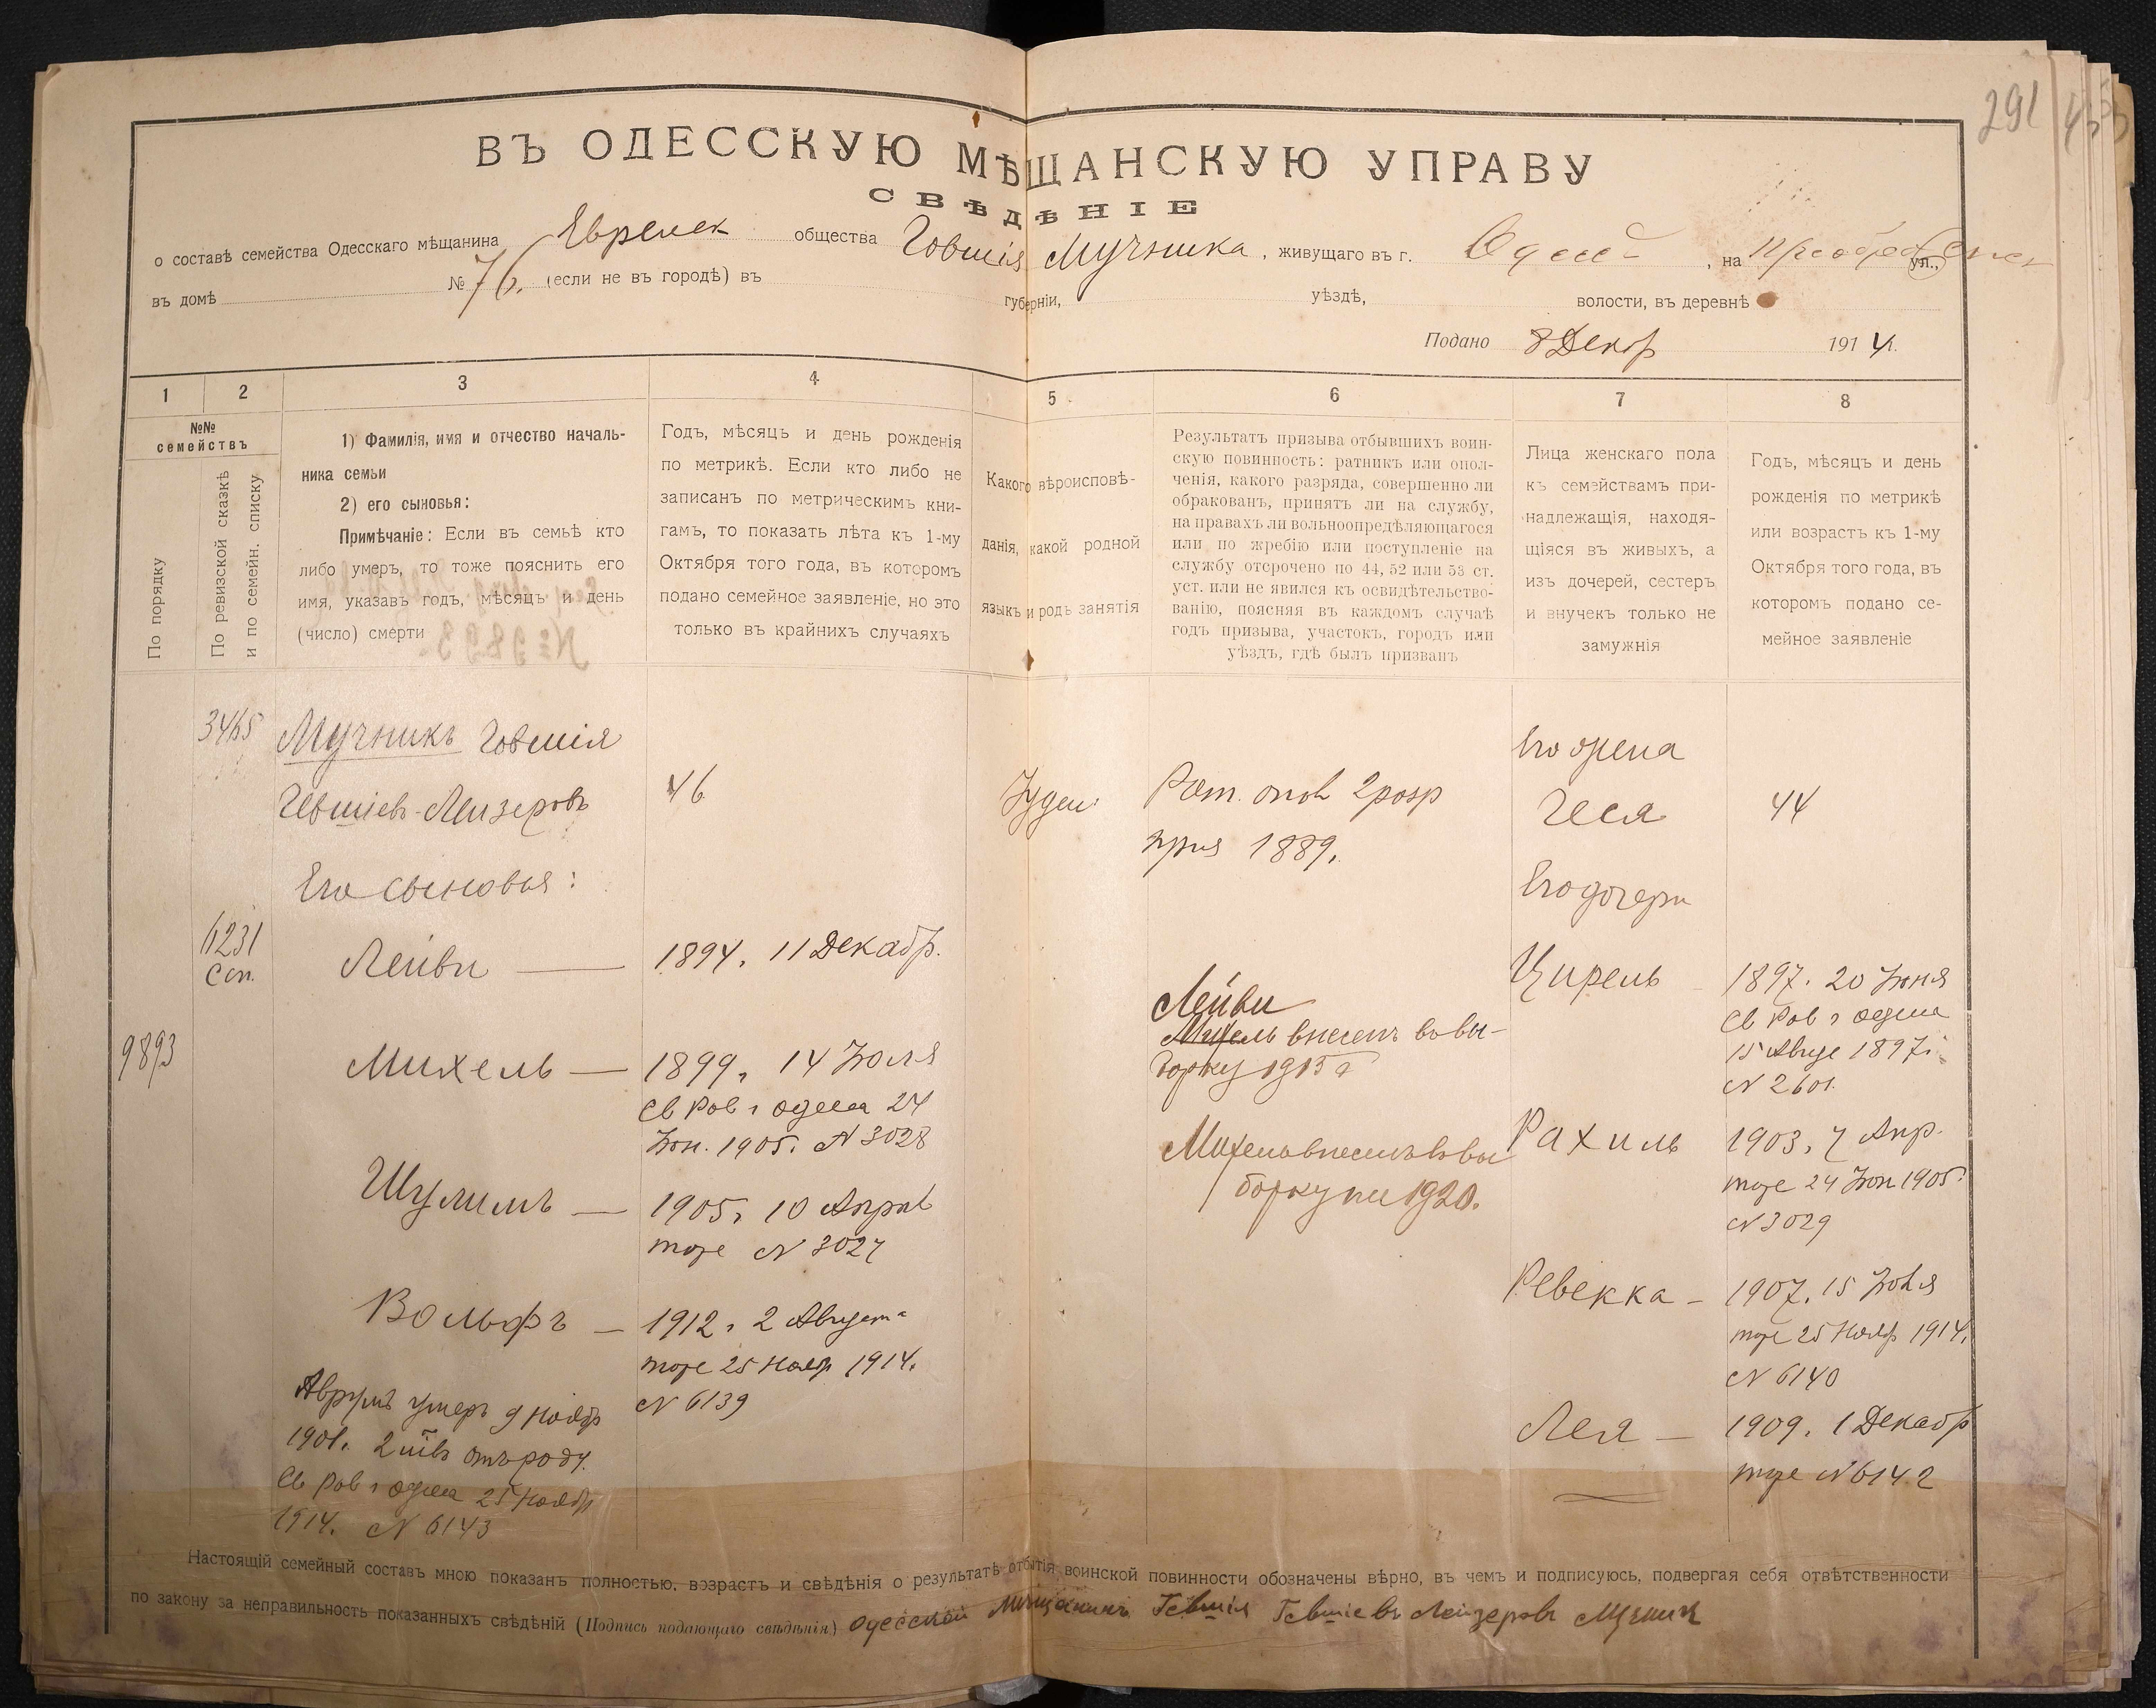 291
ВЪ ОДЕССКУЮ МѢЩАНСКУЮ УПРАВУ
СВѢДѢНІЕ
о составѣ семейства Одесскаго мѣщанина Евреиск общества Мучника, живущаго въ г. на ул.,
въ домѣ № 76. (если не въ городѣ) въ губерніи, уѣздѣ, волости, въ деревнѣ
Подано 8 Декбр 1914 г.
1 2 3 4 5 6 7 8
№№
семействъ
По порядку
По ревизской сказкѣ
и по семейн. списку
1) Фамилія, имя и отчество началь-
ника семьи
2) его сыновья:
Примѣчаніе: Если въ семьѣ кто
либо умеръ, то тоже пояснить его
имя, указавъ годъ, мѣсяцъ и день
(число) смерти
Годъ, мѣсяцъ и день рожденія
по метрикѣ. Если кто либо не
записанъ по метрическимъ кни-
гамъ, то показать лѣта къ 1-му
Октября того года, въ которомъ
подано семейное заявленіе, но это
только въ крайнихъ случаяхъ
Какого вѣроисповѣ-
данія, какой родной
языкъ и родъ занятія
Результатъ призыва отбывшихъ воин-
скую повинность: ратникъ или опол-
ченія, какого разряда, совершенно ли
обракованъ, принятъ ли на службу,
на правахъ ли вольноопредѣляющагося
или по жребію или поступленіе на
службу отсрочено по 44, 52 или 53 ст.
уст. или не явился къ освидѣтельство-
ванію, поясняя въ каждомъ случаѣ
годъ призыва, участокъ, городъ или
уѣздъ, гдѣ былъ призванъ
Лица женскаго пола
къ семействамъ при-
надлежащія, находя-
щіяся въ живыхъ, а
изъ дочерей, сестеръ
и внучекъ только не
замужнія
Годъ, мѣсяцъ и день
рожденія по метрикѣ
или возрастъ къ 1-му
Октября того года, въ
которомъ подано се-
мейное заявленіе
3465 Мучникъ Говшія
Гевшіевъ-Лейзеровъ 46
Іудей
Рат. опол 2 разр
1889.
Его жена
Геся 44
Его сыновья:
Его дочери
6231
Соп.
Лейви — 1894. 11 Декабр.
Лейви
Михель внесенъ въ вы-
борку 1915 г
Цирель 1897. 20 Іюня
Св Рав г Одессы
15 Авгус 1897 г.
N 2601.
9893
Михель — 1899. 14 Іюля
Св Рав г Одесса 24
Іюн. 1905. N 3028
Михель внесенъ въ вы
борку на 1920.
Рахиль 1903. 7 Апр.
тоже 24 Іюн 1905.
N 3029
Шулимъ — 1905. 10 Апрѣл
тоже N 3027
Вольфъ — 1912. 2 Августа
тоже 25 Нояб 1914.
N 6139
Ревекка — 1907. 15 Іюля
тоже 25 Нояб 1914.
N 6140
Аврумъ умеръ 9 Ноябр
1901. 2 отъ роду.
Св Рав г Одесса 25 Ноябр
1914. N 6143
Лея — 1909. 1 Декабр
тоже N 6142
Настоящій семейный составъ мною показанъ полностью, возрастъ и свѣдѣнія о результатѣ отбытія воинской повинности обозначены вѣрно, въ чемъ и подписуюсь, подвергая себя отвѣтственности
по закону за неправильность показанныхъ свѣдѣній (Подпись подающаго свѣдѣнія) Одесскій Мѣщанинъ Гевшія Гевшіевъ Лейзеровъ Мучник